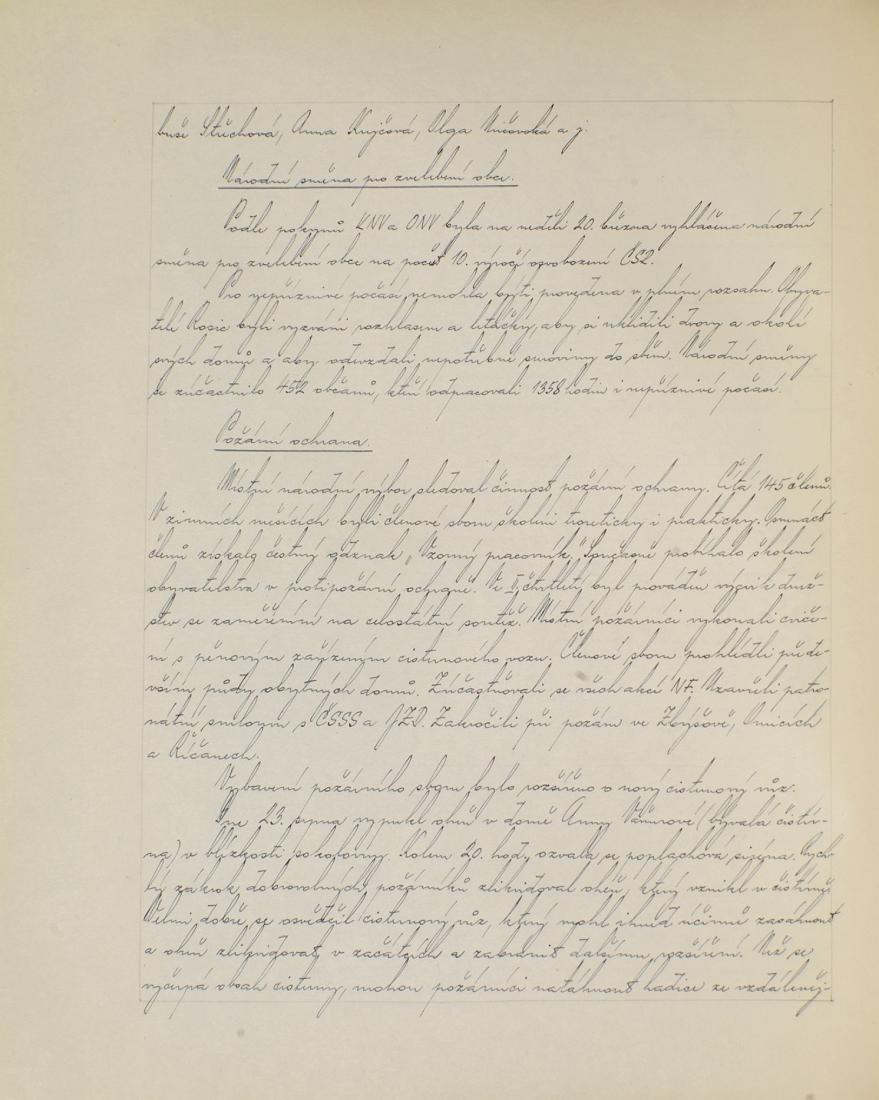 buše Střechová, Anna Krejčová, Olga Mičovská a j.
Národní směna pro zvelebení obce.
Podle pokynů KNV a ONV byla na neděli 20. března vyhlášena národní
směna pro zvelebení obce na počest 10. výročí osvobození ČSR.
Pro nepříznivé počasí nemohla býti provedena v plném rozsahu. Obyva-
telé Rosic byli vyzváni rozhlasem a letáčky, aby si uklidili dvory a okolí
svých domů a aby odevzdali nepotřebné suroviny do sběru. Národní směny
se zúčastnilo 452 občanů, kteří odpracovali 1358 hodin i v nepříznivé počasí.
Požární ochrana.
Místní národní výbor sledoval činnost požární ochrany. Čítá 145 členů.
V zimních měsících byli členové sboru školeni teoreticky i prakticky. Osmnáct
členů získalo čestný odznak „Vzorný pracovník." Současně probíhalo školení
obyvatelstva v protipožární ochraně. Ve II. čtvrtletí byl prováděn výcvik druž-
stev se zaměřením na celostátní soutěž. Místní požárníci vykonali cviče-
ní s pěnovým zařízením cisternového vozu. Členové sboru prohlédli přede-
vším půdy obytných domů. Zúčastňovali se všech akcí NF. Uzavřeli patro-
nátní smlouvu s ČSSS a JZD. Zakročili při požáru ve Zbýšově, Omicích
a Říčanech.
Vybavení požárního sboru bylo rozšířeno o nový cisternový vůz.
Dne 23. srpna vypukl oheň v domě Anny Váňurové (bývalá čistír-
na) v blízkosti sokolovny. Kolem 20. hod. ozvala se poplachová siréna. Rych-
lý zákrok dobrovolných požárníků zlikvidoval oheň, který vznikl v čistírně.
Velmi dobře se osvědčil cisternový vůz, který mohl ihned účinně zasáhnout
a oheň zlikvidovat v začátcích a zabránit dalšímu rozšíření. Než se
vyčerpá obsah cisterny, mohou požárníci natáhnout hadice ze vzdáleněj-